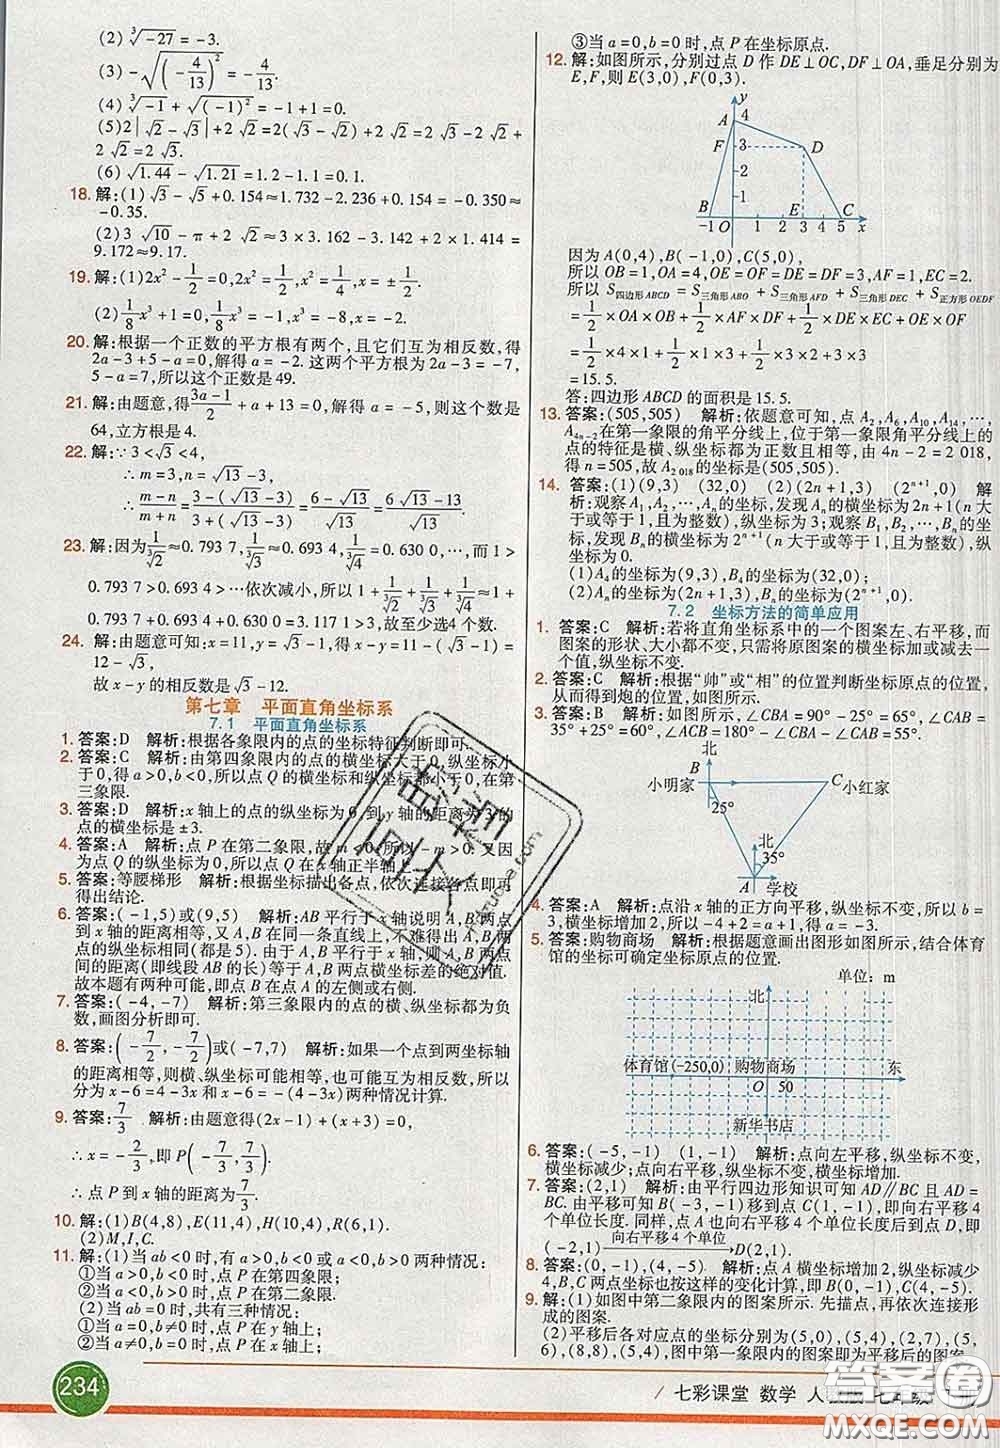 (2) ∛-27 = -3.
(3) -√(-4/13)² = -4/13.
(4) ∛-1 + √(-1)² = -1+1=0.
(5) 2|√2-√3|+2√2=2(√3-√2)+2√2=2√3-2√2+
2√2=2√3.
(6) √1.44-√1.21=1.2-1.1=0.1.
18. 解:(1)√3-√5+0.154≈1.732-2.236+0.154=-0.350≈
-0.35.
(2)3√10-π+2√2≈3×3.162-3.142+2×1.414=
9.172≈9.17.
19. 解:(1)2x²-1/2=0,2x²=1/2,x²=1/4,x=±1/2.
(2)1/8x³+1=0,1/8x³=-1,x³=-8,x=-2.
20. 解:根据一个正数的平方根有两个,且它们互为相反数,得
2a-3+5-a=0,解得a=-2.这两个平方根为2a-3=-7,
5-a=7,所以这个正数是49.
21. 解:由题意,得(3a-1)/2+a+13=0,解得a=-5,则这个数是
64,立方根是4.
22. 解:∵3<√13<4,
∴m=3,n=√13-3,
∴(m-n)/(m+n)=(3-(√13-3))/(3+(√13-3))=(6-√13)/√13=(6√13-13)/13.
23. 解:因为1/∛2≈0.793 7,1/∛3≈0.693 4,1/∛4≈0.630 0,…,而1>
0.793 7>0.693 4>…依次减小,所以1+1/∛2+1/∛3+1/∛4≈1+
0.793 7+0.693 4+0.630 0=3.117 1>3,故至少选4个数.
24. 解:由题意可知:x=11,y=√3-1,则x-y=11-(√3-1)=
12-√3,
故x-y的相反数是√3-12.
第七章 平面直角坐标系
7.1 平面直角坐标系
1. 答案:D 解析:根据各象限内的点的坐标特征判断即可.
2. 答案:C 解析:由第四象限内的点的横坐标大于0,纵坐标小
于0,得a>0,-b<0,所以点Q的横坐标和纵坐标都小于0,在第
三象限.
3. 答案:D 解析:x轴上的点的纵坐标为0,到y轴的距离为3的
点的横坐标是±3.
4. 答案:A 解析:点P在第二象限,故m<0,所以-m>0.又因
为点Q的纵坐标为0,所以点Q在x轴正半轴上.
5. 答案:等腰梯形 解析:根据坐标描出各点,依次连接各点即可
得出结论.
6. 答案:(-1,5)或(9,5) 解析:AB平行于x轴说明A,B两点的
纵坐标相等,又A,B在同一条直线上,所以AB这条直线上的点
的纵坐标相同(都是5).因为AB两点平行于x轴,所以A,B两点
间的距离(即线段AB的长)即A,B两点横坐标差的绝对值.
故本题有两种可能,即点B在点A的左侧或右侧.
7. 答案:(-4,-7) 解析:第三象限内的点的横、纵坐标都为负
数,画图分析即可.
8. 答案:(-7/2,-7/2)或(-7,7) 解析:如果一个点到两坐标轴
的距离相等,则横、纵坐标可能相等,也可能互为相反数,所以
分为x-6=4-3x和x-6=-(4-3x)两种情况计算.
9. 答案:7/3 解析:由题意得(2x-1)+(x+3)=0,
∴x=-2/3,即P(-7/3,7/3),
∴点P到x轴的距离为7/3.
10. 解:(1)B(4,8),E(11,4),H(10,4),R(6,1).
(2)M,I,C.
11. 解:(1)当ab<0时,有a>0,b<0或a<0,b>0两种情况:
①当a>0,b<0时,点P在第四象限;
②当a<0,b>0时,点P在第二象限.
(2)当ab=0时,共有三种情况:
①当a=0,b≠0时,点P在y轴上;
②当a≠0,b=0时,点P在x轴上;
③当a=0,b=0时,点P在坐标原点.
12. 解:如图所示,分别过点D作DE⊥OC,DF⊥OA,垂足分别为
E,F,则E(3,0),F(0,3).
y
A 4
F 3 D
2
1
B E C
-1 O 1 2 3 4 5 x
因为A(0,4),B(-1,0),C(5,0),
所以OB=1,OA=4,OE=OF=DE=DF=3,AF=1,EC=2.
所以S四边形ABCD=S三角形ABO+S三角形AFD+S三角形DEC+S正方形OEDF
=1/2×OA×OB+1/2×AF×DF+1/2×DE×EC+OE×OF
=1/2×4×1+1/2×1×3+1/2×3×2+3×3
=15.5.
答:四边形ABCD的面积是15.5.
13. 答案:(505,505) 解析:依题意可知,点A₂,A₆,A₁₀,A₁₄,…,
A₄ₙ₋₂在第一象限的角平分线上,位于第一象限角平分线上的
点的特征是横、纵坐标都为正数且相等,由4n-2=2 018,
得n=505,故A₂ ₀₁₈的坐标是(505,505).
14. 答案:(1)(9,3) (32,0) (2)(2n+1,3) (2ⁿ⁺¹,0) 解
析:观察A₁,A₂,…,Aₙ的坐标,发现Aₙ的横坐标为2n+1(n大
于或等于1,且为整数),纵坐标为3;观察B₁,B₂,…,Bₙ的坐
标,发现Bₙ的横坐标为2ⁿ⁺¹(n大于或等于1,且为整数),纵坐
标为0.
(1)A₄的坐标为(9,3),B₄的坐标为(32,0);
(2)Aₙ的坐标为(2n+1,3),Bₙ的坐标为(2ⁿ⁺¹,0).
7.2 坐标方法的简单应用
1. 答案:C 解析:若将直角坐标系中的一个图案左、右平移,而
图案的形状、大小都不变,只需将原图案的横坐标加或减去一
个值,纵坐标不变.
2. 答案:C 解析:根据“帅”或“相”的位置判断坐标原点的位置,
从而得到炮的位置.如图所示.
3. 答案:B 解析:如图所示,∠CBA=90°-25°=65°,∠CAB=
35°+25°=60°,∠ACB=180°-∠CBA-∠CAB=55°.
北
B C
小明家 小红家
25°
北
35°
A 学校
4. 答案:A 解析:点沿x轴的正方向平移,纵坐标不变,所以b=
3,横坐标增加2,所以-1+2=a+4,得a=-3.
5. 答案:购物商场 解析:根据题意画出图形如图所示,结合体育
馆的坐标可确定坐标原点的位置.
单位:m
北
体育馆(-250,0) 购物商场 东
O 50
新华书店
6. 答案:(-5,-1) (1,-1) 解析:点向左平移,纵坐标不变,
横坐标减少;点向右平移,纵坐标不变,横坐标增加.
7. 答案:(2,1) 解析:由平行四边形知识可知AD∥BC且AD=
BC,而由点B(-3,-1)移到点C(1,-1),即向右平移4
个单位长度.同样,点A也向右平移4个单位长度后到点D,即
(-2,1) 向右平移4个单位长度→D(2,1).
8. 答案:(0,-1),(4,-5) 解析:点A横坐标增加2,纵坐标减少
4,B,C两点坐标也按这样的变化计算,即B(0,-1),C(4,-5).
9. 解:(1)如图中第二象限内的图案所示.先描点,再依次连接形
成的图案.
(2)平移后各对应点的坐标分别为(5,0),(5,4),(2,7),(5,
6),(8,8),(5,4),图中第一象限内的图案即为平移后的图案.
234
七彩课堂 数学 人教版 七年级
答案圈
MXQE.COM